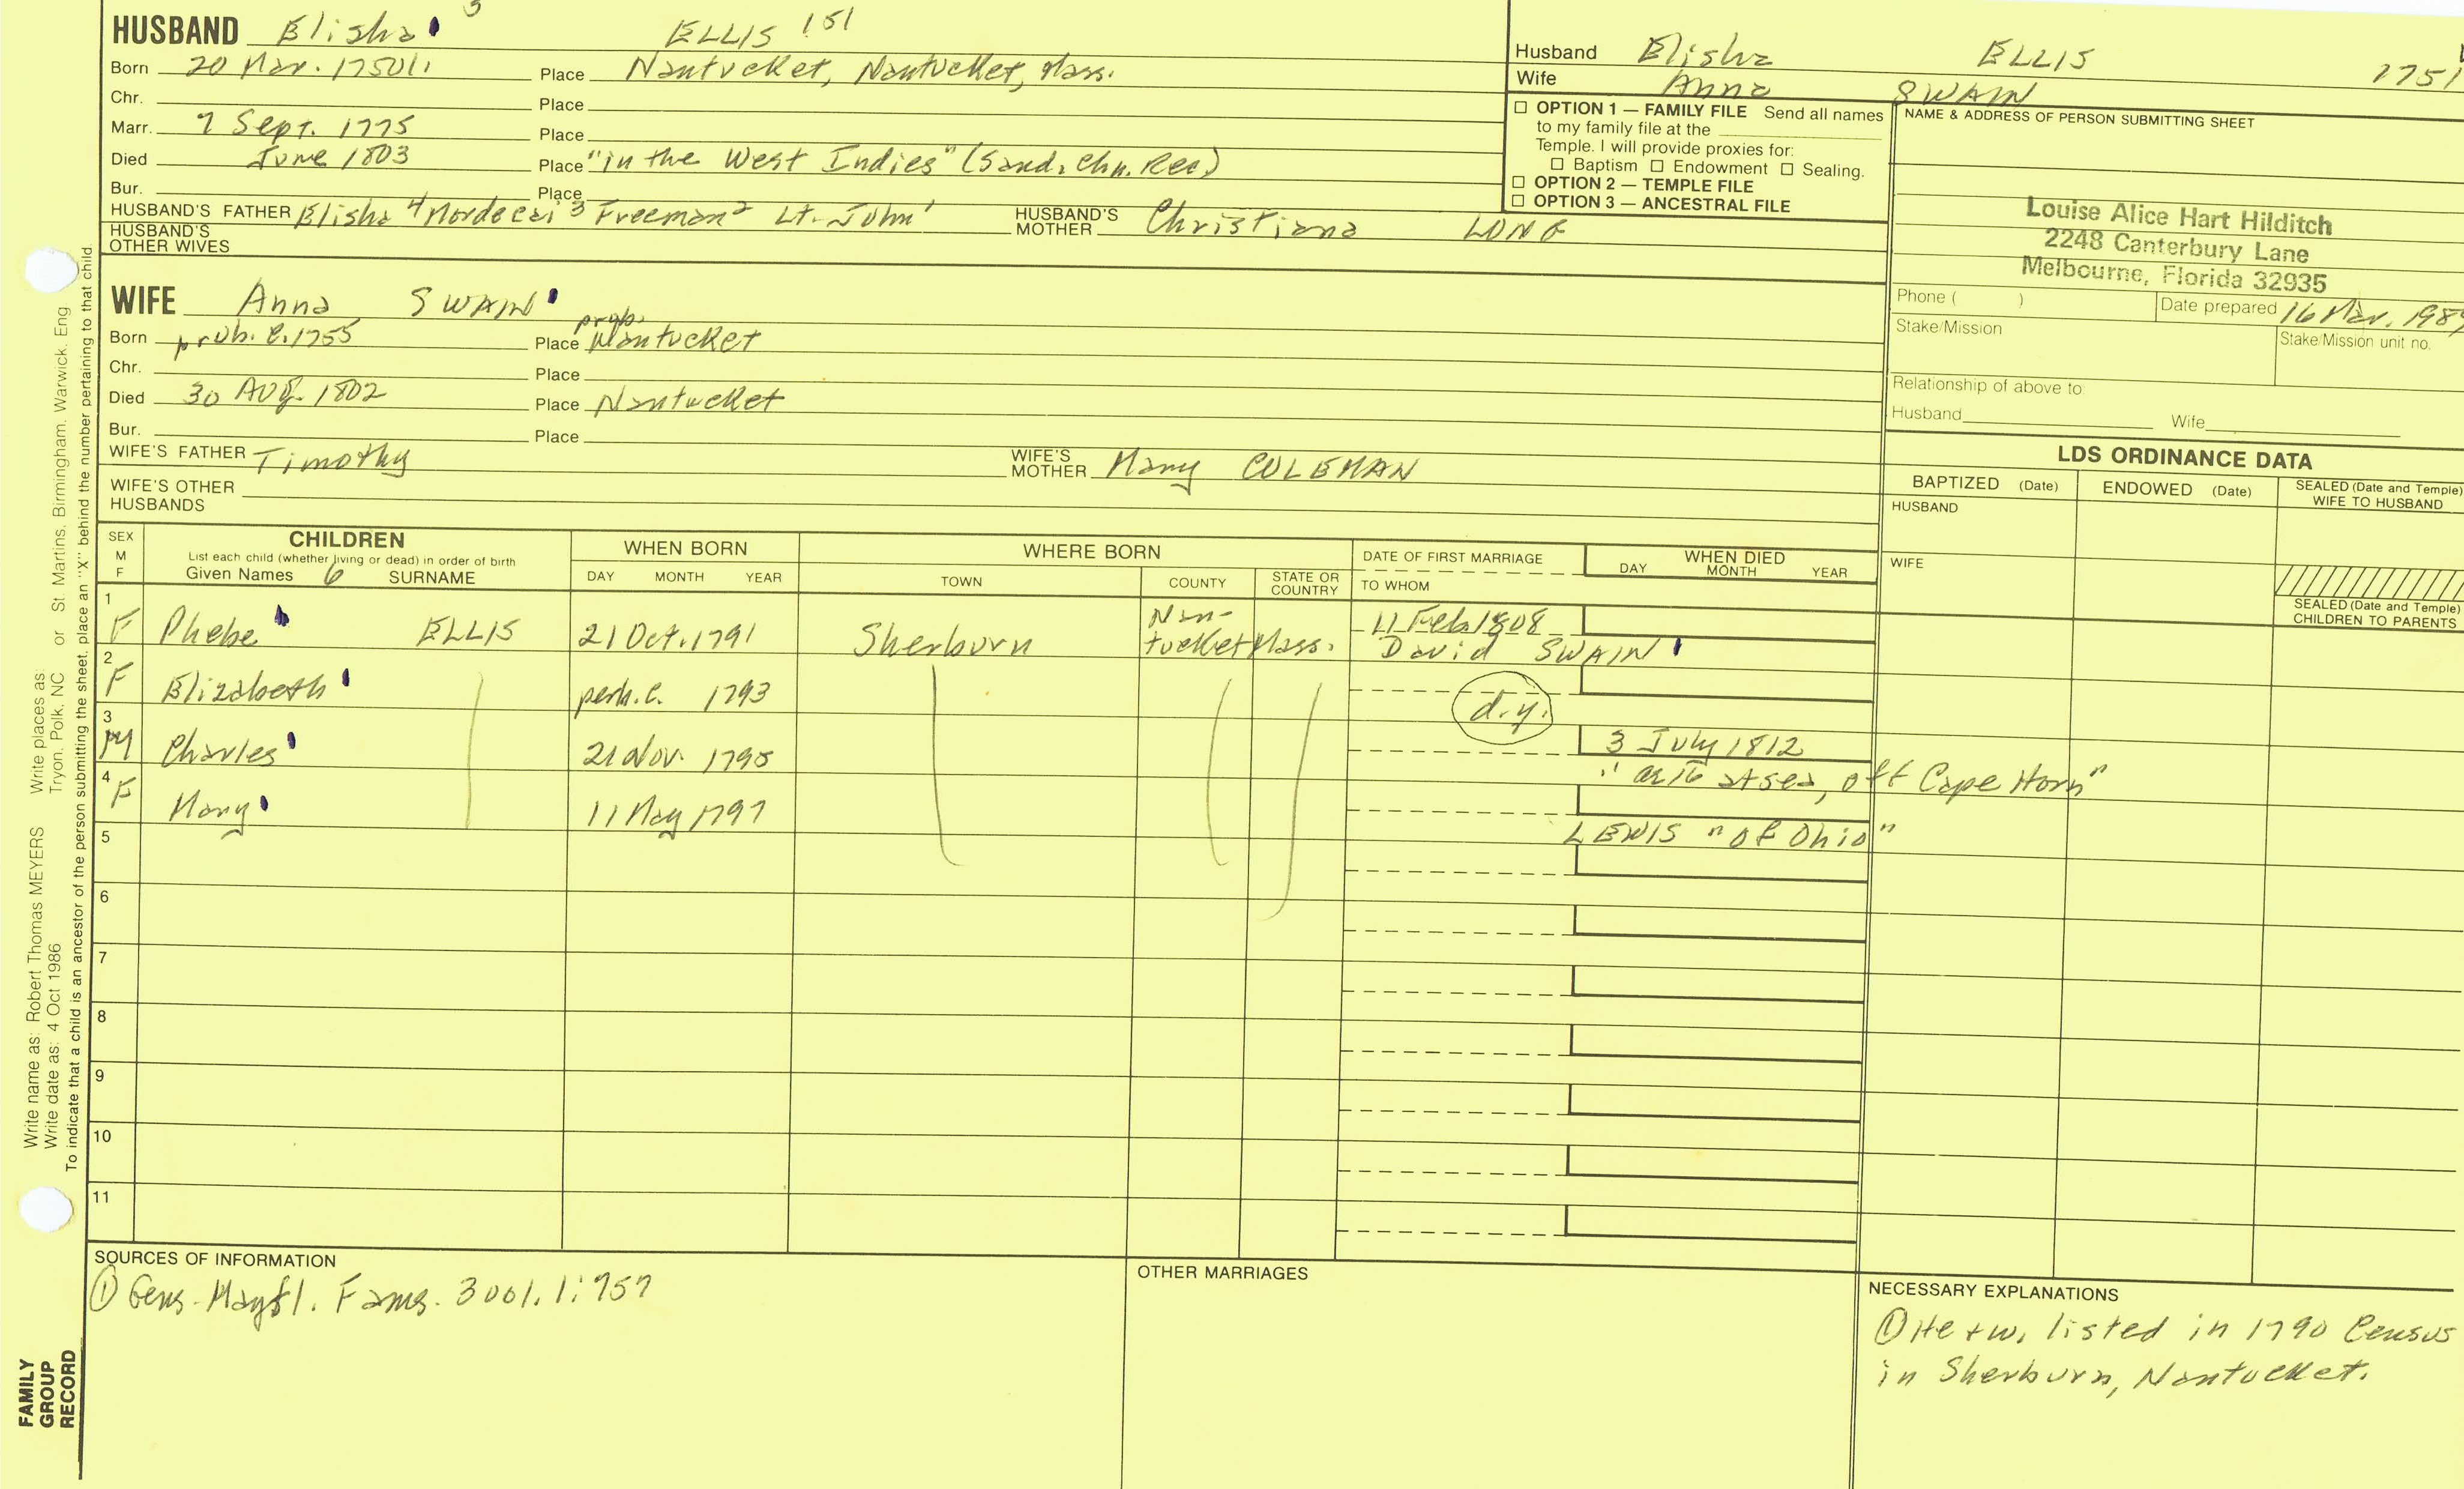 HUSBAND Elisha 5 ELLIS 151
Born 20 Mar. 1750/1 Place Nantucket, Nantucket, Mass.
Chr. Place
Marr. 7 Sept. 1775 Place
Died June 1803 Place "in the West Indies" (Sand. Chn. Rec)
Bur. Place
HUSBAND'S FATHER Elisha 4 Mordecai 3 Freeman 2 Lt. John 1 HUSBAND'S MOTHER Christiana LONG
HUSBAND'S OTHER WIVES
WIFE Anna SWAIN
Born prob. c. 1755 Place prob. Nantucket
Chr. Place
Died 30 Aug. 1802 Place Nantucket
Bur. Place
WIFE'S FATHER Timothy WIFE'S MOTHER Mary COLEMAN
WIFE'S OTHER HUSBANDS
Husband Elisha ELLIS 1751
Wife Anna SWAIN
☐ OPTION 1 — FAMILY FILE Send all names
to my family file at the
Temple. I will provide proxies for:
☐ Baptism ☐ Endowment ☐ Sealing.
☐ OPTION 2 — TEMPLE FILE
☐ OPTION 3 — ANCESTRAL FILE
NAME & ADDRESS OF PERSON SUBMITTING SHEET
Louise Alice Hart Hilditch
2248 Canterbury Lane
Melbourne, Florida 32935
Phone ( ) Date prepared 16 Mar.
Stake/Mission Stake/Mission unit no.
Relationship of above to:
Husband Wife
LDS ORDINANCE DATA
BAPTIZED (Date) ENDOWED (Date) SEALED (Date and Temple) WIFE TO HUSBAND
HUSBAND
WIFE
SEALED (Date and Temple)
CHILDREN TO PARENTS
SEX M F
CHILDREN
List each child (whether living or dead) in order of birth
Given Names 6 SURNAME
WHEN BORN
DAY MONTH YEAR
WHERE BORN
TOWN COUNTY STATE OR COUNTRY
DATE OF FIRST MARRIAGE
TO WHOM
WHEN DIED
DAY MONTH YEAR
1 F Phebe ELLIS 21 Oct. 1791 Sherburn Nan-tucket Mass. 11 Feb. 1808
David SWAIN
2 F Elizabeth perh. c. 1793 d.y.
3 M Charles 21 Nov. 1795 3 July 1812
"ae 16 at sea, off Cape Horn"
4 F Mary 11 May 1797
LEWIS "of Ohio"
5
6
7
8
9
10
11
SOURCES OF INFORMATION
① Gens. Mayfl. Fams. 3 vol. 1:757
OTHER MARRIAGES
NECESSARY EXPLANATIONS
① He + w. listed in 1790 Census
in Sherburn, Nantucket.
Write name as: Robert Thomas MEYERS Write places as: St. Martins, Birmingham, Warwick, Eng
Write date as: 4 Oct 1986 Tryon, Polk, NC or
To indicate that a child is an ancestor of the person submitting the sheet, place an "X" behind the number pertaining to that child.
FAMILY
GROUP
RECORD